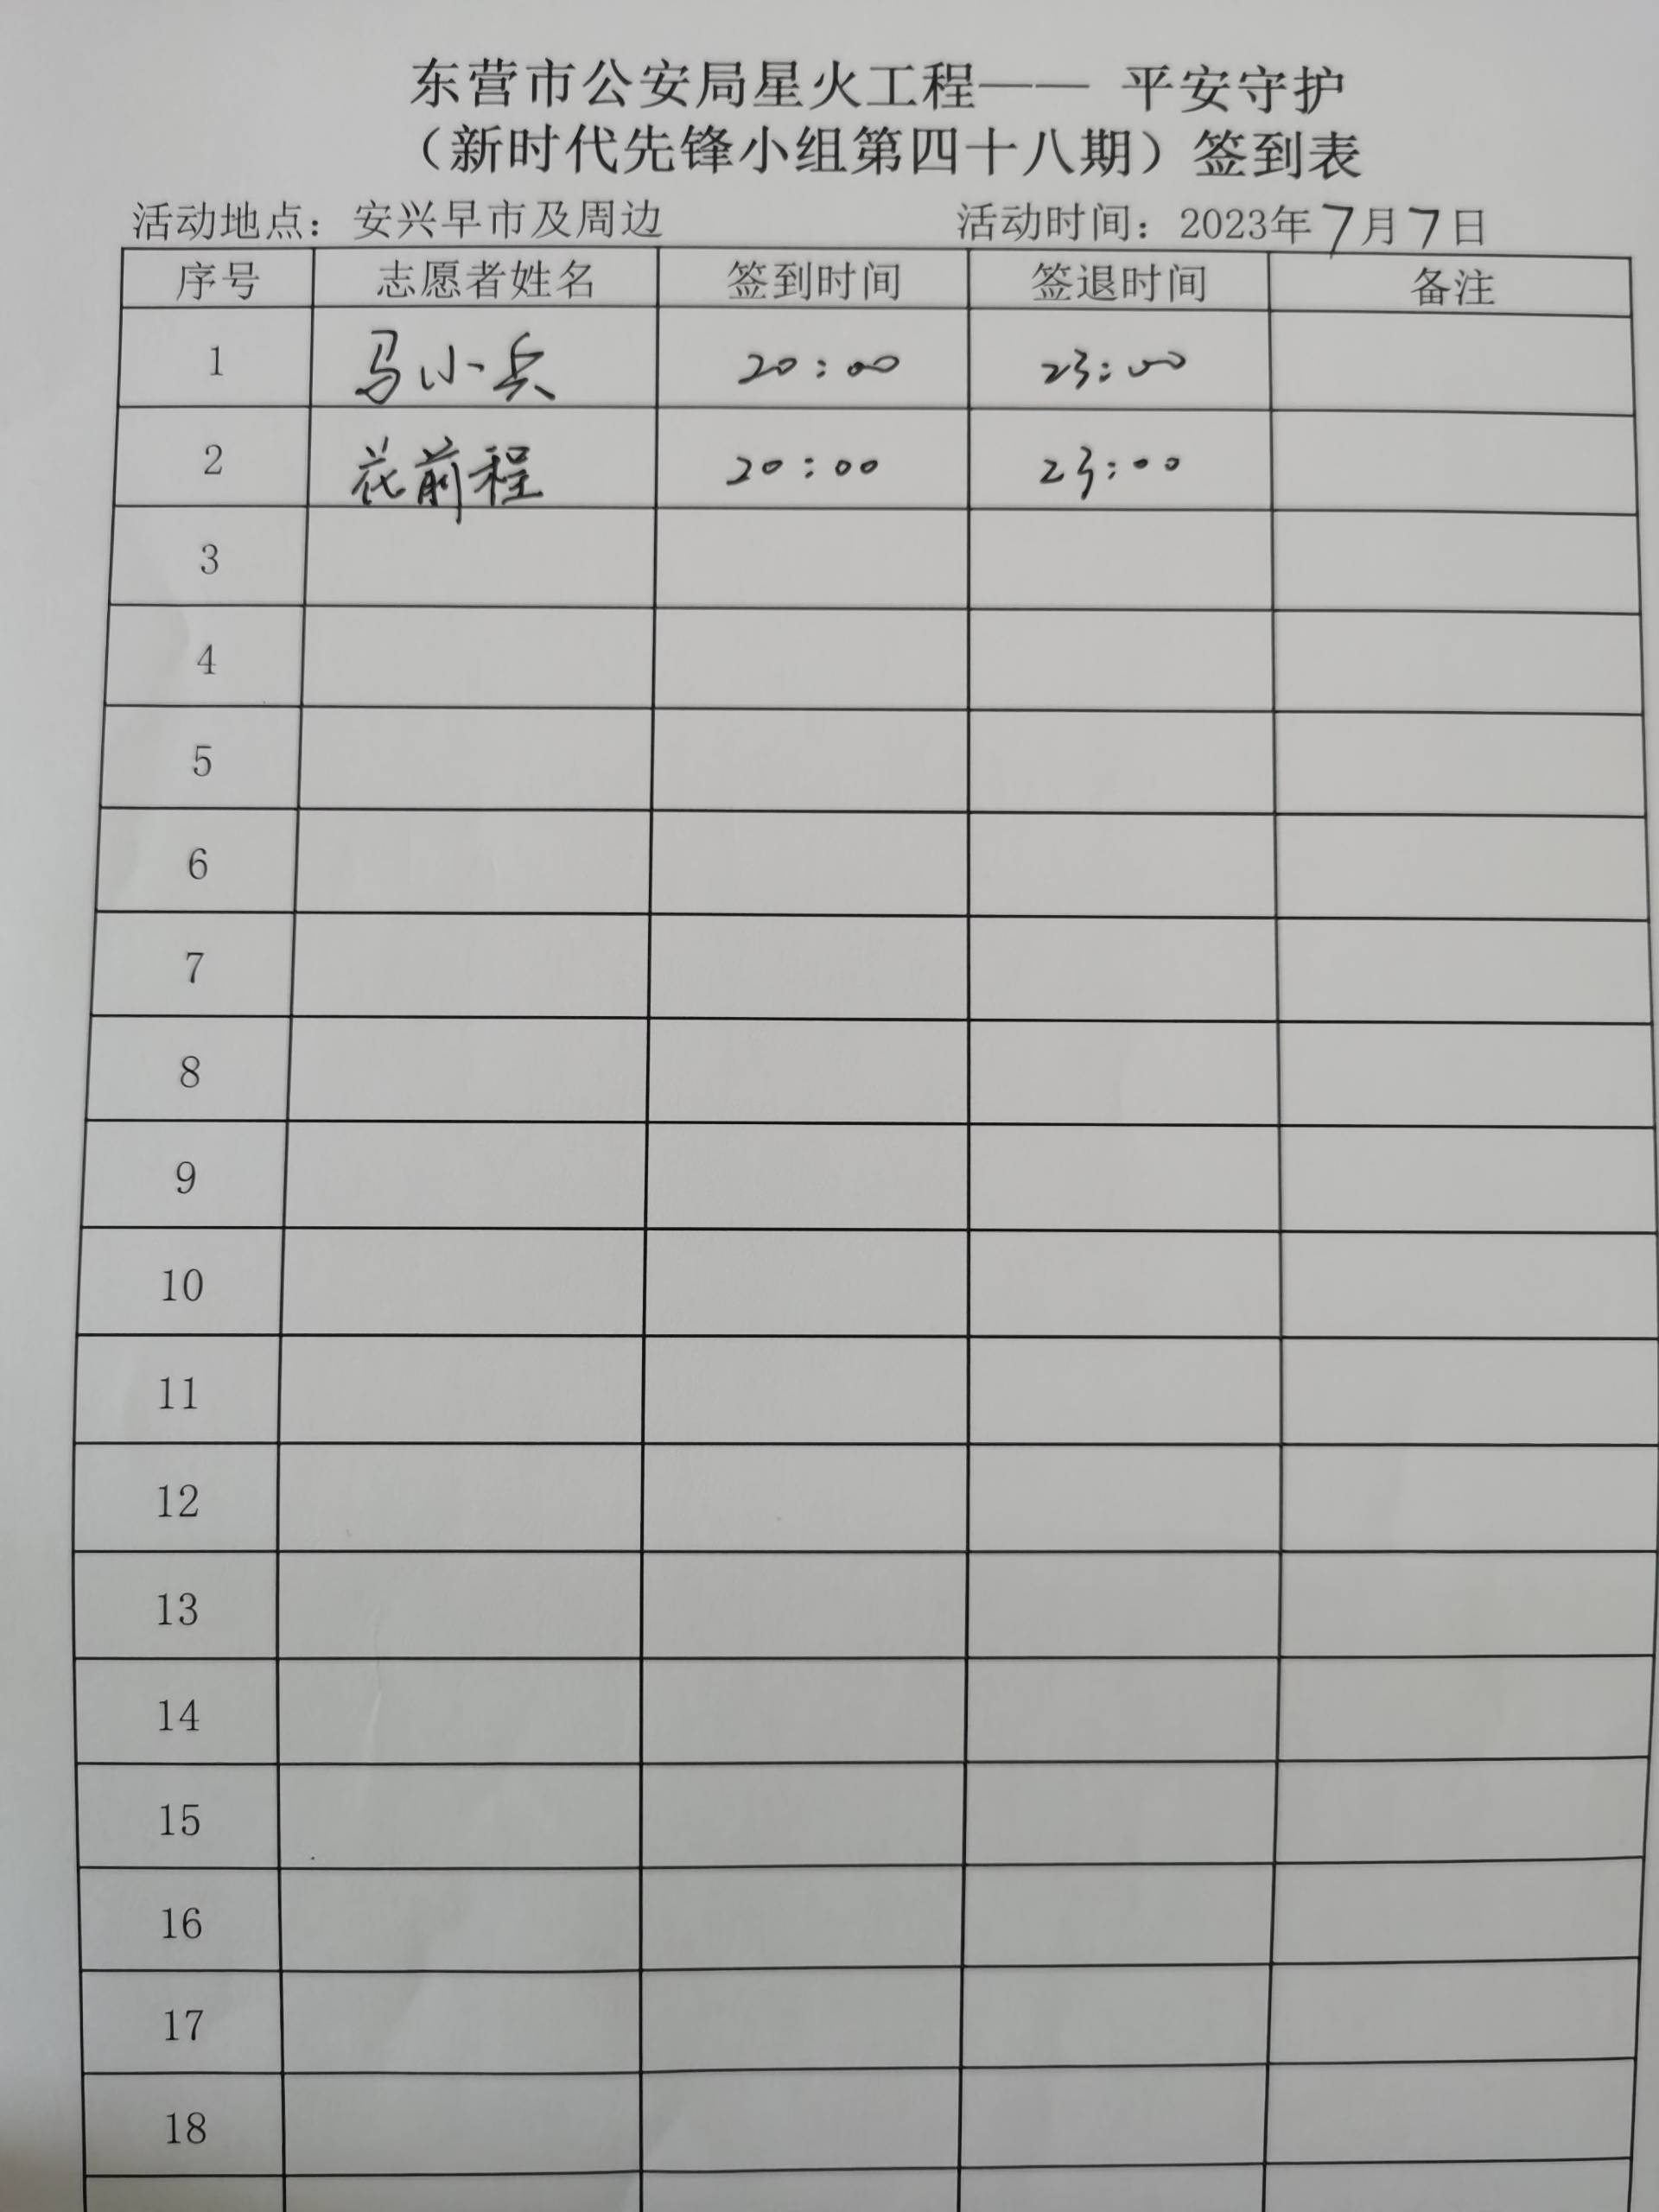 东营市公安局星火工程—— 平安守护
（新时代先锋小组第四十八期）签到表
活动地点：安兴早市及周边 活动时间：2023年7月7日
序号 志愿者姓名 签到时间 签退时间 备注
1 马小兵 20:00 23:00
2 花前程 20:00 23:00
3
4
5
6
7
8
9
10
11
12
13
14
15
16
17
18